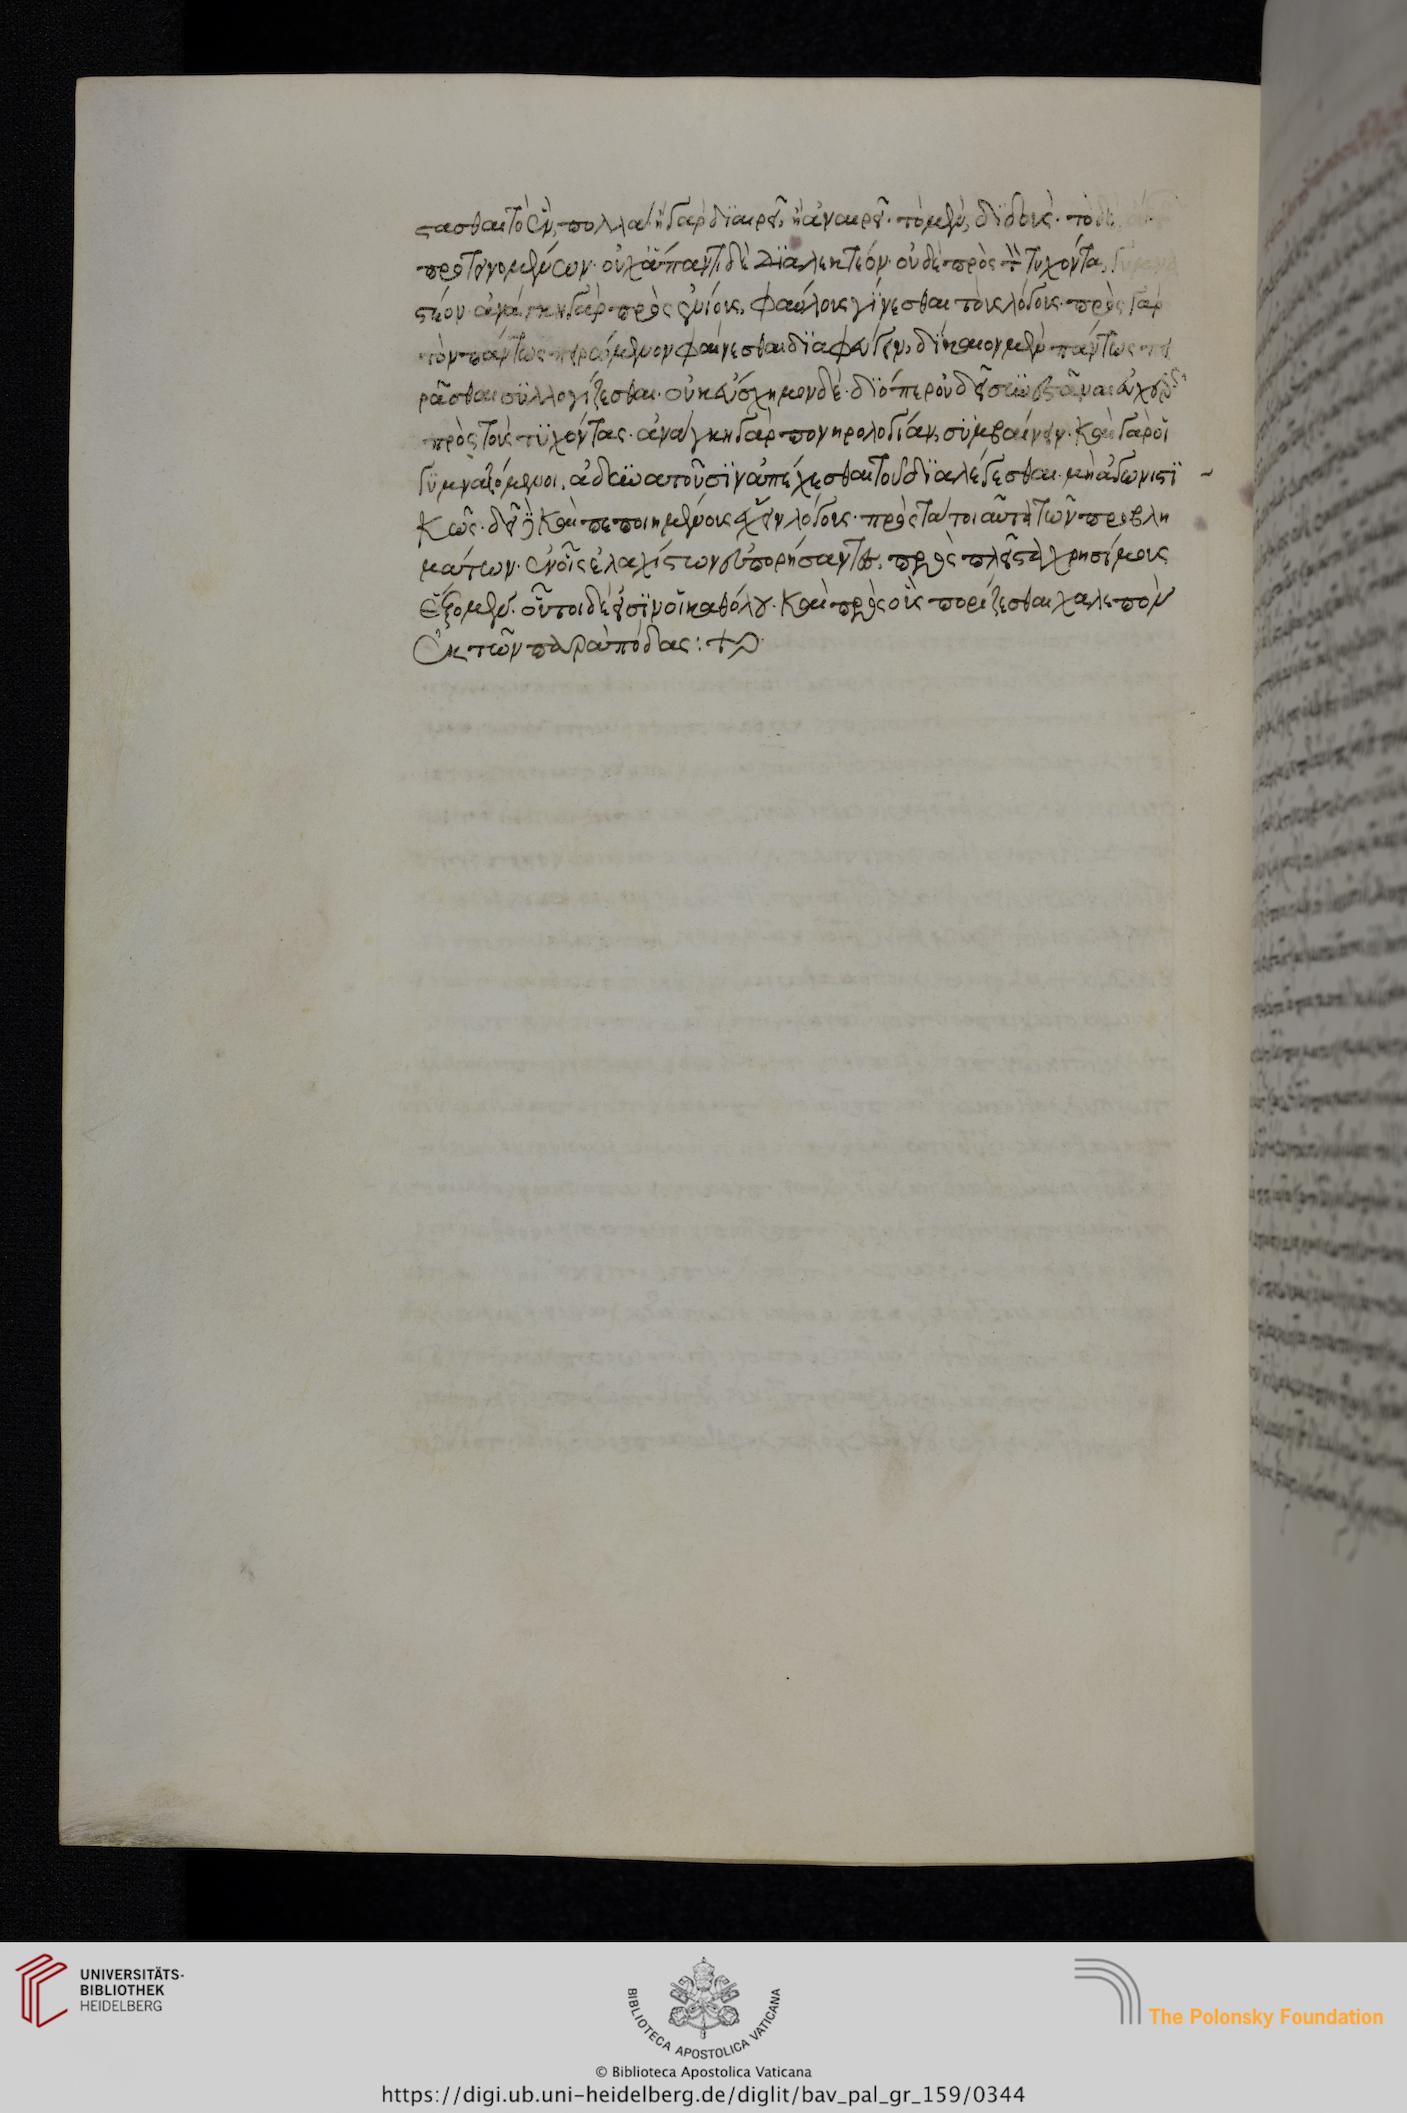 στασθαι τὸ ἓν, πολλα· ἢ γὰρ διαιρεῖ, ἢ ἀναιρεῖ· τὸ μὲν, διδοὺς· τὸ δὲ
προτεινομένων· οὐχ ἅπαντι δὲ διαλεκτέον· οὐδὲ πρὸς τὸν τυχόντα,
στέον· ἀνάγκη γὰρ πρὸς ἐνίους, φαύλους γίνεσθαι τοὺς λόγους· πρὸς γὰρ
τὸν πάντως πειρώμενον φαίνεσθαι διαφεύγειν, δίκαιον μὲν πάντως πει
ρᾶσθαι συλλογίζεσθαι· οὐκ εὔσχημον δέ· διόπερ οὐ δεῖ συνεστάναι εὐχερῶς
πρὸς τοὺς τυχόντας· ἀνάγκη γὰρ πονηρολογίαν, συμβαίνειν· καὶ γὰρ οἱ
γυμναζόμενοι, ἀδυνατοῦσιν ἀπέχεσθαι τοῦ διαλέγεσθαι· μὴ ἀγωνιστι
κῶς· δεῖ δὲ καὶ πεποιημένους ἔχειν λόγους· πρὸς τὰ τοιαῦτα τῶν προβλη
μάτων· ἐν οἷς ἐλαχίστων εὐπορήσαντες, πρὸς πλεῖστα χρησίμους
ἕξομεν· οὗτοι δέ εἰσιν οἱ καθόλου· καὶ πρὸς οὓς πορίζεσθαι χαλεπὸν
ἐκ τῶν παρὰ πόδας : +
UNIVERSITÄTS-
BIBLIOTHEK
HEIDELBERG
BIBLIOTECA APOSTOLICA VATICANA
The Polonsky Foundation
© Biblioteca Apostolica Vaticana
https://digi.ub.uni-heidelberg.de/diglit/bav_pal_gr_159/0344